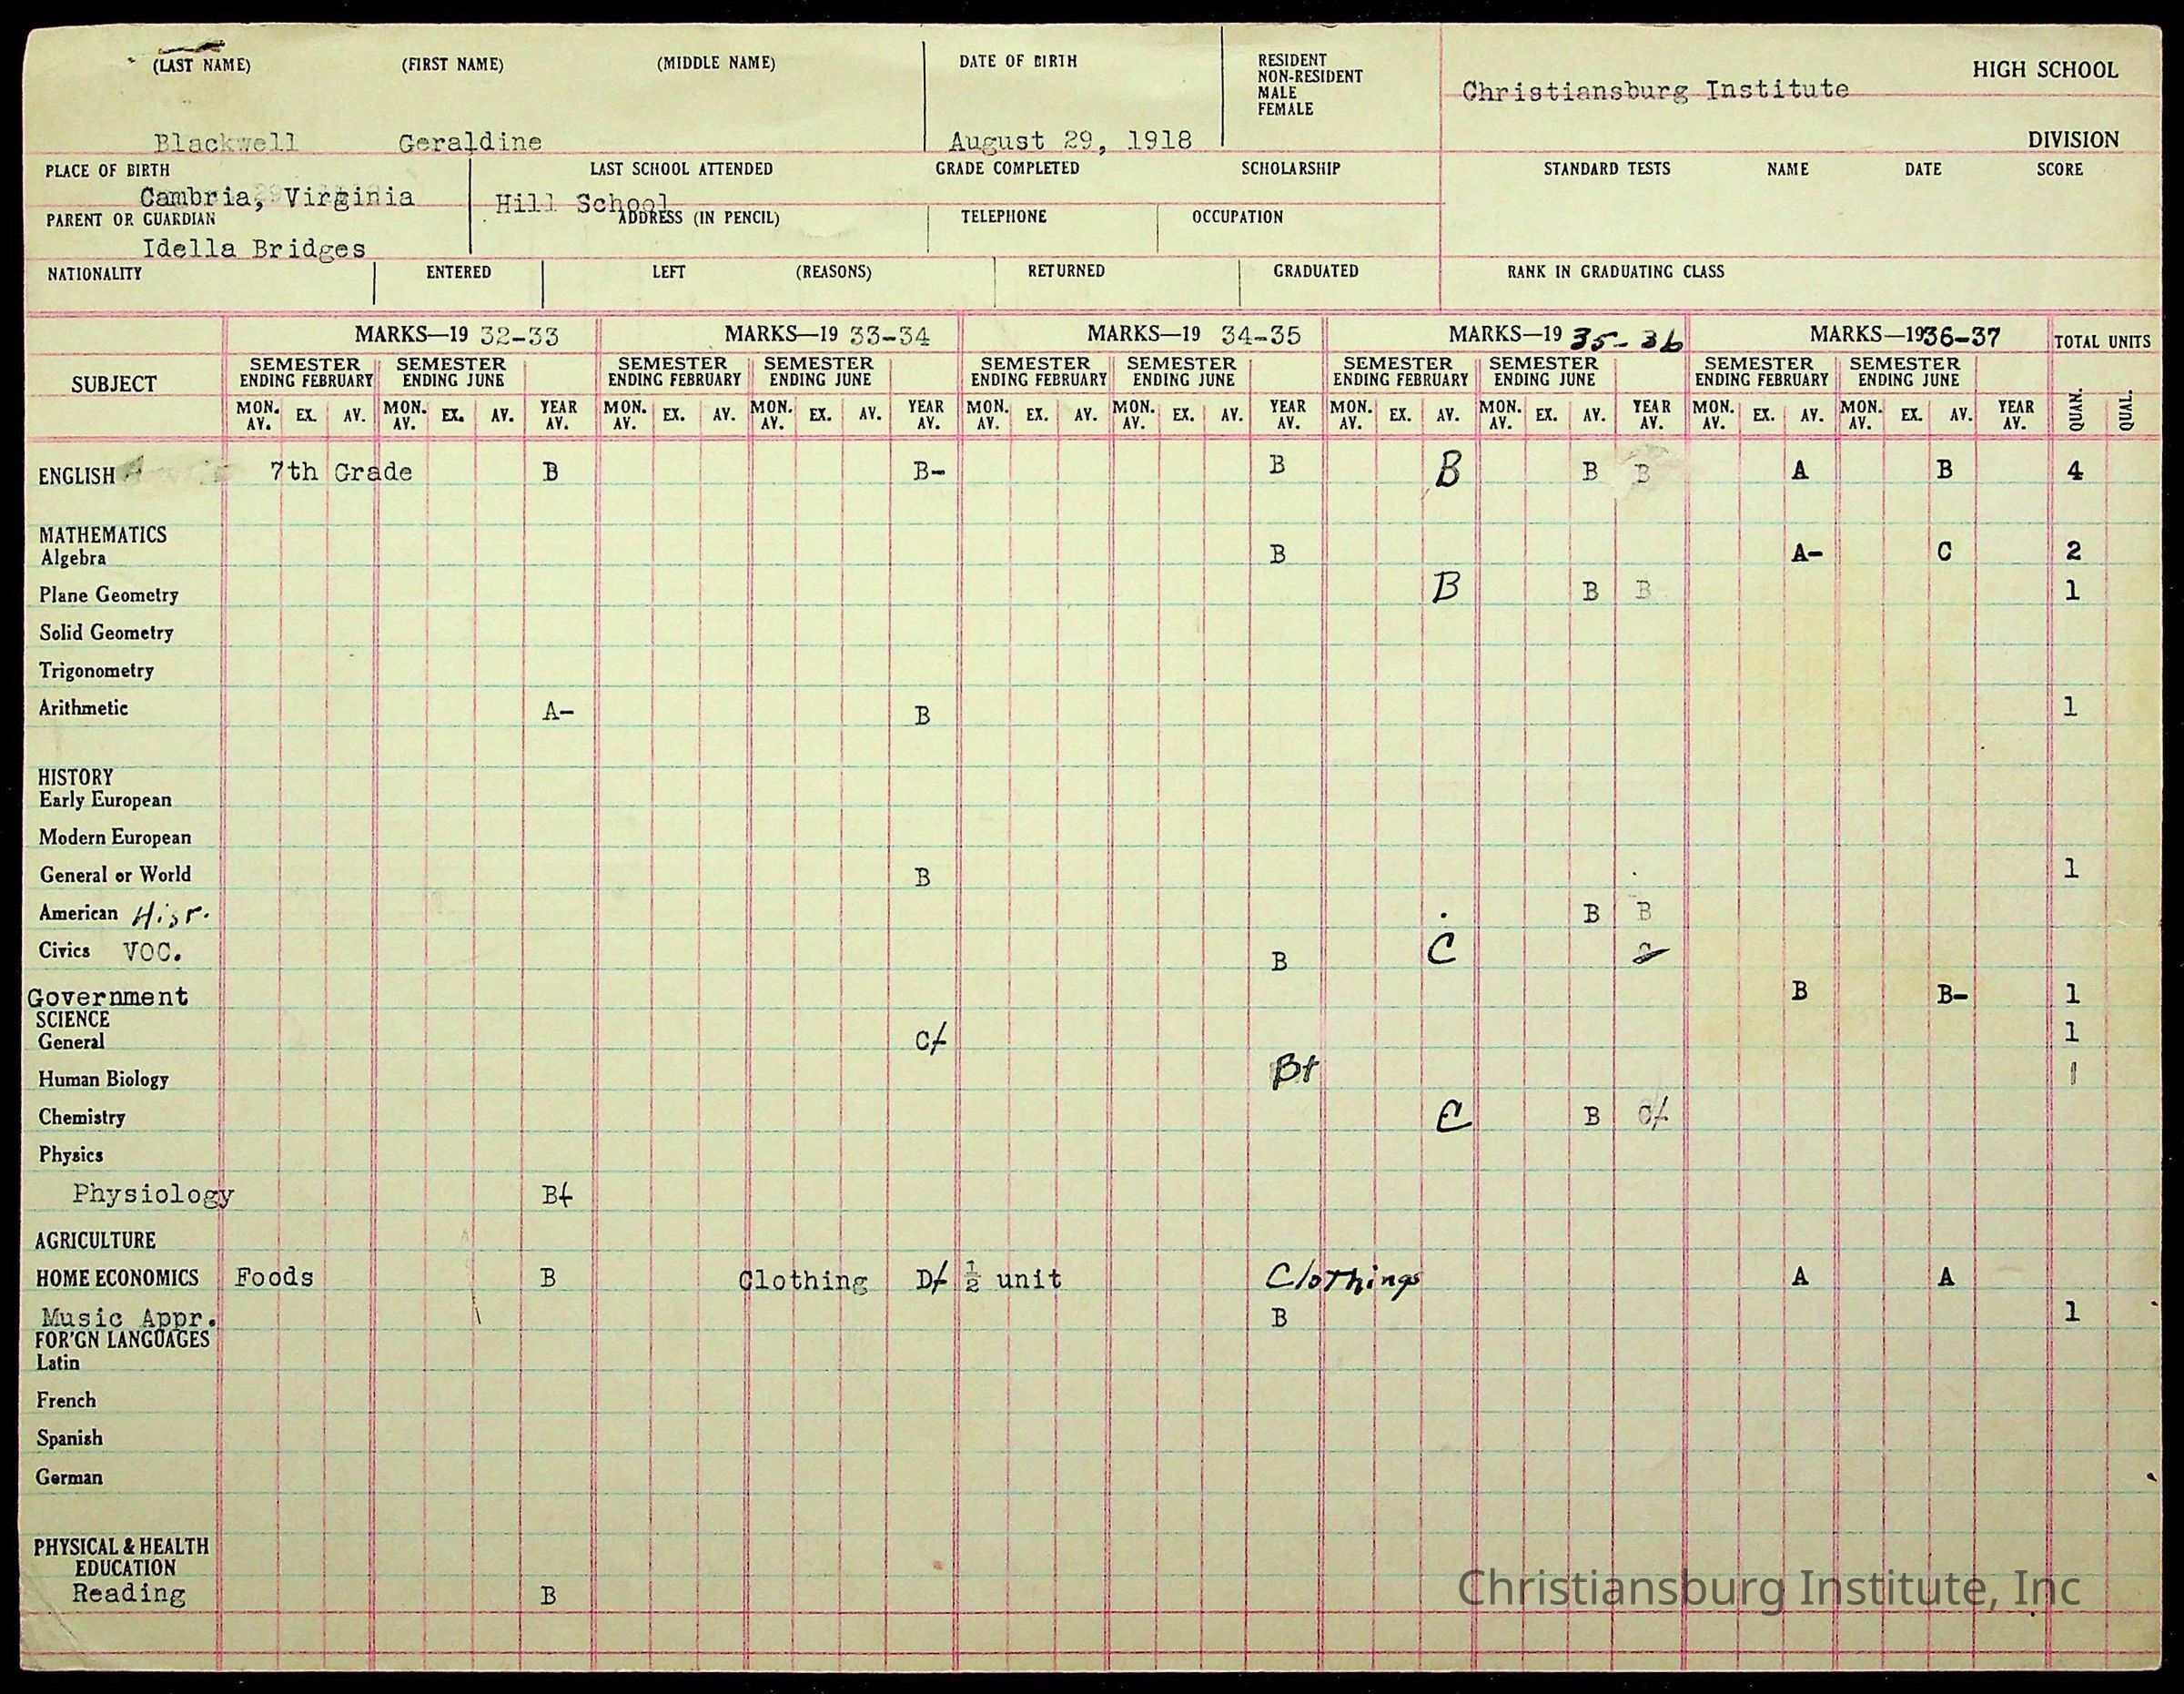 (LAST NAME) (FIRST NAME) (MIDDLE NAME) DATE OF BIRTH RESIDENT
NON-RESIDENT
MALE
FEMALE
HIGH SCHOOL
Christiansburg Institute
Blackwell Geraldine August 29, 1918 DIVISION
PLACE OF BIRTH LAST SCHOOL ATTENDED GRADE COMPLETED SCHOLARSHIP STANDARD TESTS NAME DATE SCORE
Cambria, Virginia Hill School
PARENT OR GUARDIAN ADDRESS (IN PENCIL) TELEPHONE OCCUPATION
Idella Bridges
NATIONALITY ENTERED LEFT (REASONS) RETURNED GRADUATED RANK IN GRADUATING CLASS
MARKS—19 32-33 MARKS—19 33-34 MARKS—19 34-35 MARKS—19 35-36 MARKS—1936-37 TOTAL UNITS
SUBJECT
SEMESTER ENDING FEBRUARY SEMESTER ENDING JUNE SEMESTER ENDING FEBRUARY SEMESTER ENDING JUNE SEMESTER ENDING FEBRUARY SEMESTER ENDING JUNE SEMESTER ENDING FEBRUARY SEMESTER ENDING JUNE SEMESTER ENDING FEBRUARY SEMESTER ENDING JUNE
MON. AV. EX. AV. MON. AV. EX. AV. YEAR AV. MON. AV. EX. AV. MON. AV. EX. AV. YEAR AV. MON. AV. EX. AV. MON. AV. EX. AV. YEAR AV. MON. AV. EX. AV. MON. AV. EX. AV. YEAR AV. MON. AV. EX. AV. MON. AV. EX. AV. YEAR AV. QUAN. QUAL.
ENGLISH 7th Grade B B- B B B B A B 4
MATHEMATICS
Algebra B A- C 2
Plane Geometry B B B 1
Solid Geometry
Trigonometry
Arithmetic A- B 1
HISTORY
Early European
Modern European
General or World B 1
American Hist. B B
Civics VOC. B C
Government B B- 1
SCIENCE
General C+ 1
Human Biology B+ 1
Chemistry C B C+
Physics
Physiology B+
AGRICULTURE
HOME ECONOMICS Foods B Clothing D+ ½ unit Clothings A A
Music Appr. B 1
FOR'GN LANGUAGES
Latin
French
Spanish
German
PHYSICAL & HEALTH
EDUCATION
Reading B
Christiansburg Institute, Inc